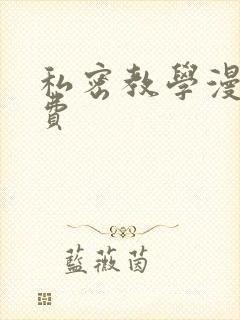 私密教學漫
費
藍薇茵